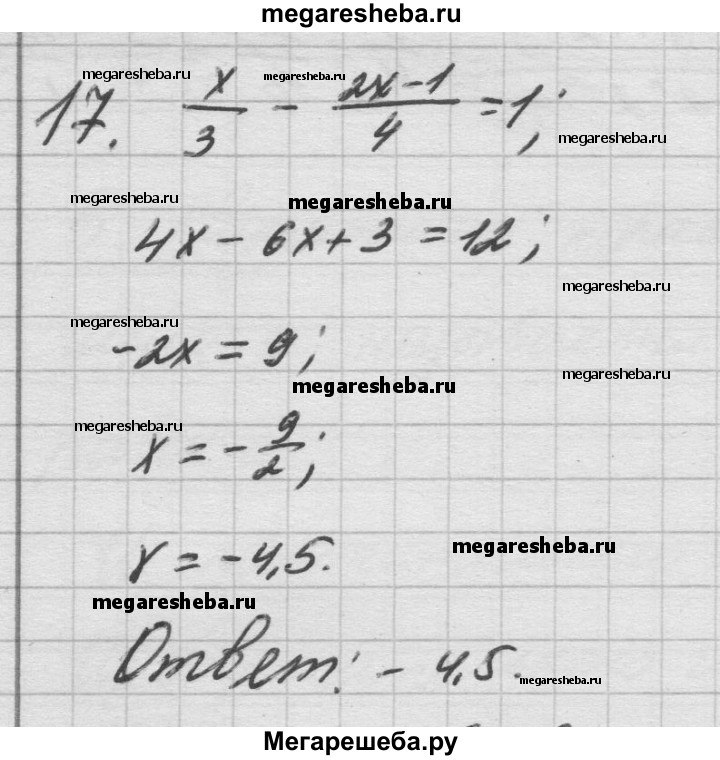 megaresheba.ru
megaresheba.ru megaresheba.ru
17. x/3 - (2x-1)/4 = 1;
megaresheba.ru
megaresheba.ru megaresheba.ru
4x - 6x + 3 = 12;
megaresheba.ru
megaresheba.ru
-2x = 9;
megaresheba.ru
megaresheba.ru
megaresheba.ru
x = -9/2;
megaresheba.ru
x = -4,5.
megaresheba.ru
Ответ: -4,5.
megaresheba.ru
Мегарешеба.ру